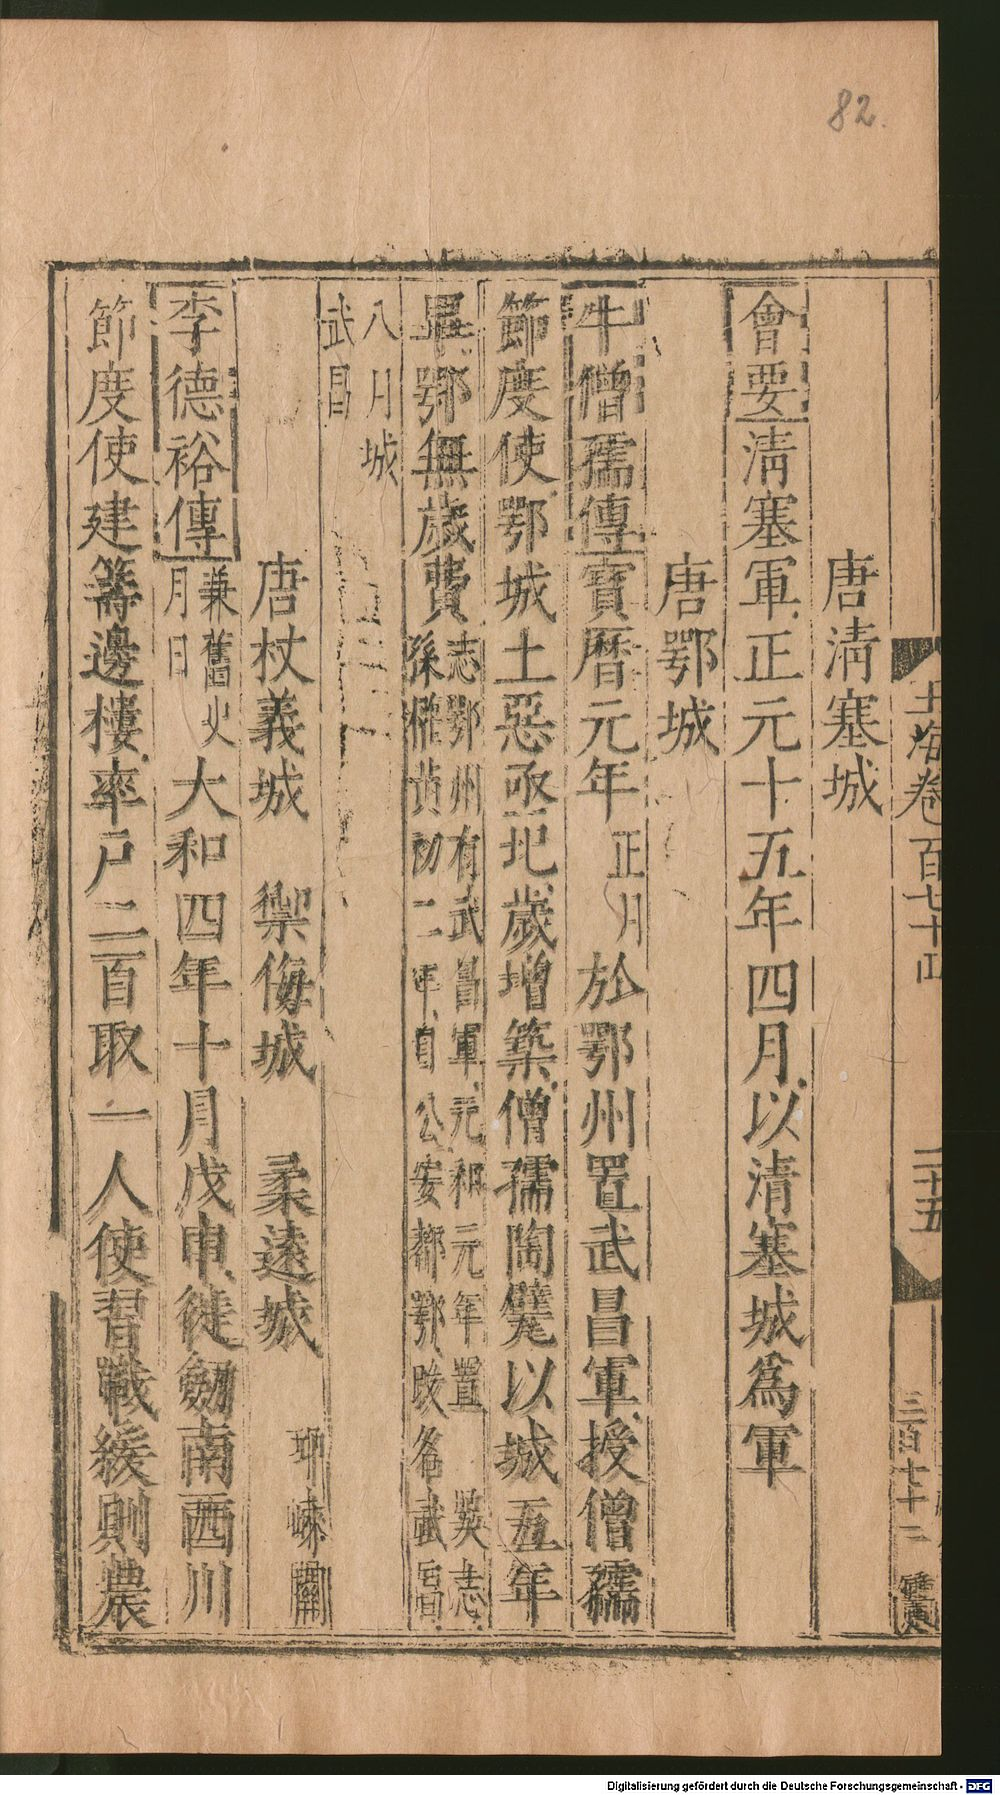 82.
玉海卷百七十四
二十五
三百七十二
唐淸塞城
會要淸塞軍正元十五年四月以清塞城爲軍
唐鄂城
牛僧孺傳寶曆元年正月於鄂州置武昌軍授僧孺
節度使鄂城土惡亟圮歲增築僧孺陶甓以城五年
畢鄂無歲費志鄂州有武昌軍元和元年置 吳志
孫權黃初二年自公安都鄂改名武昌
八月城
武昌
唐杖義城 禦侮城 柔遠城 邛崍關
李德裕傳兼舊史
月日
大和四年十月戊申徙劒南西川
節度使建籌邊樓率戶二百取一人使習戰緩則農
Digitalisierung gefördert durch die Deutsche Forschungsgemeinschaft - DFG